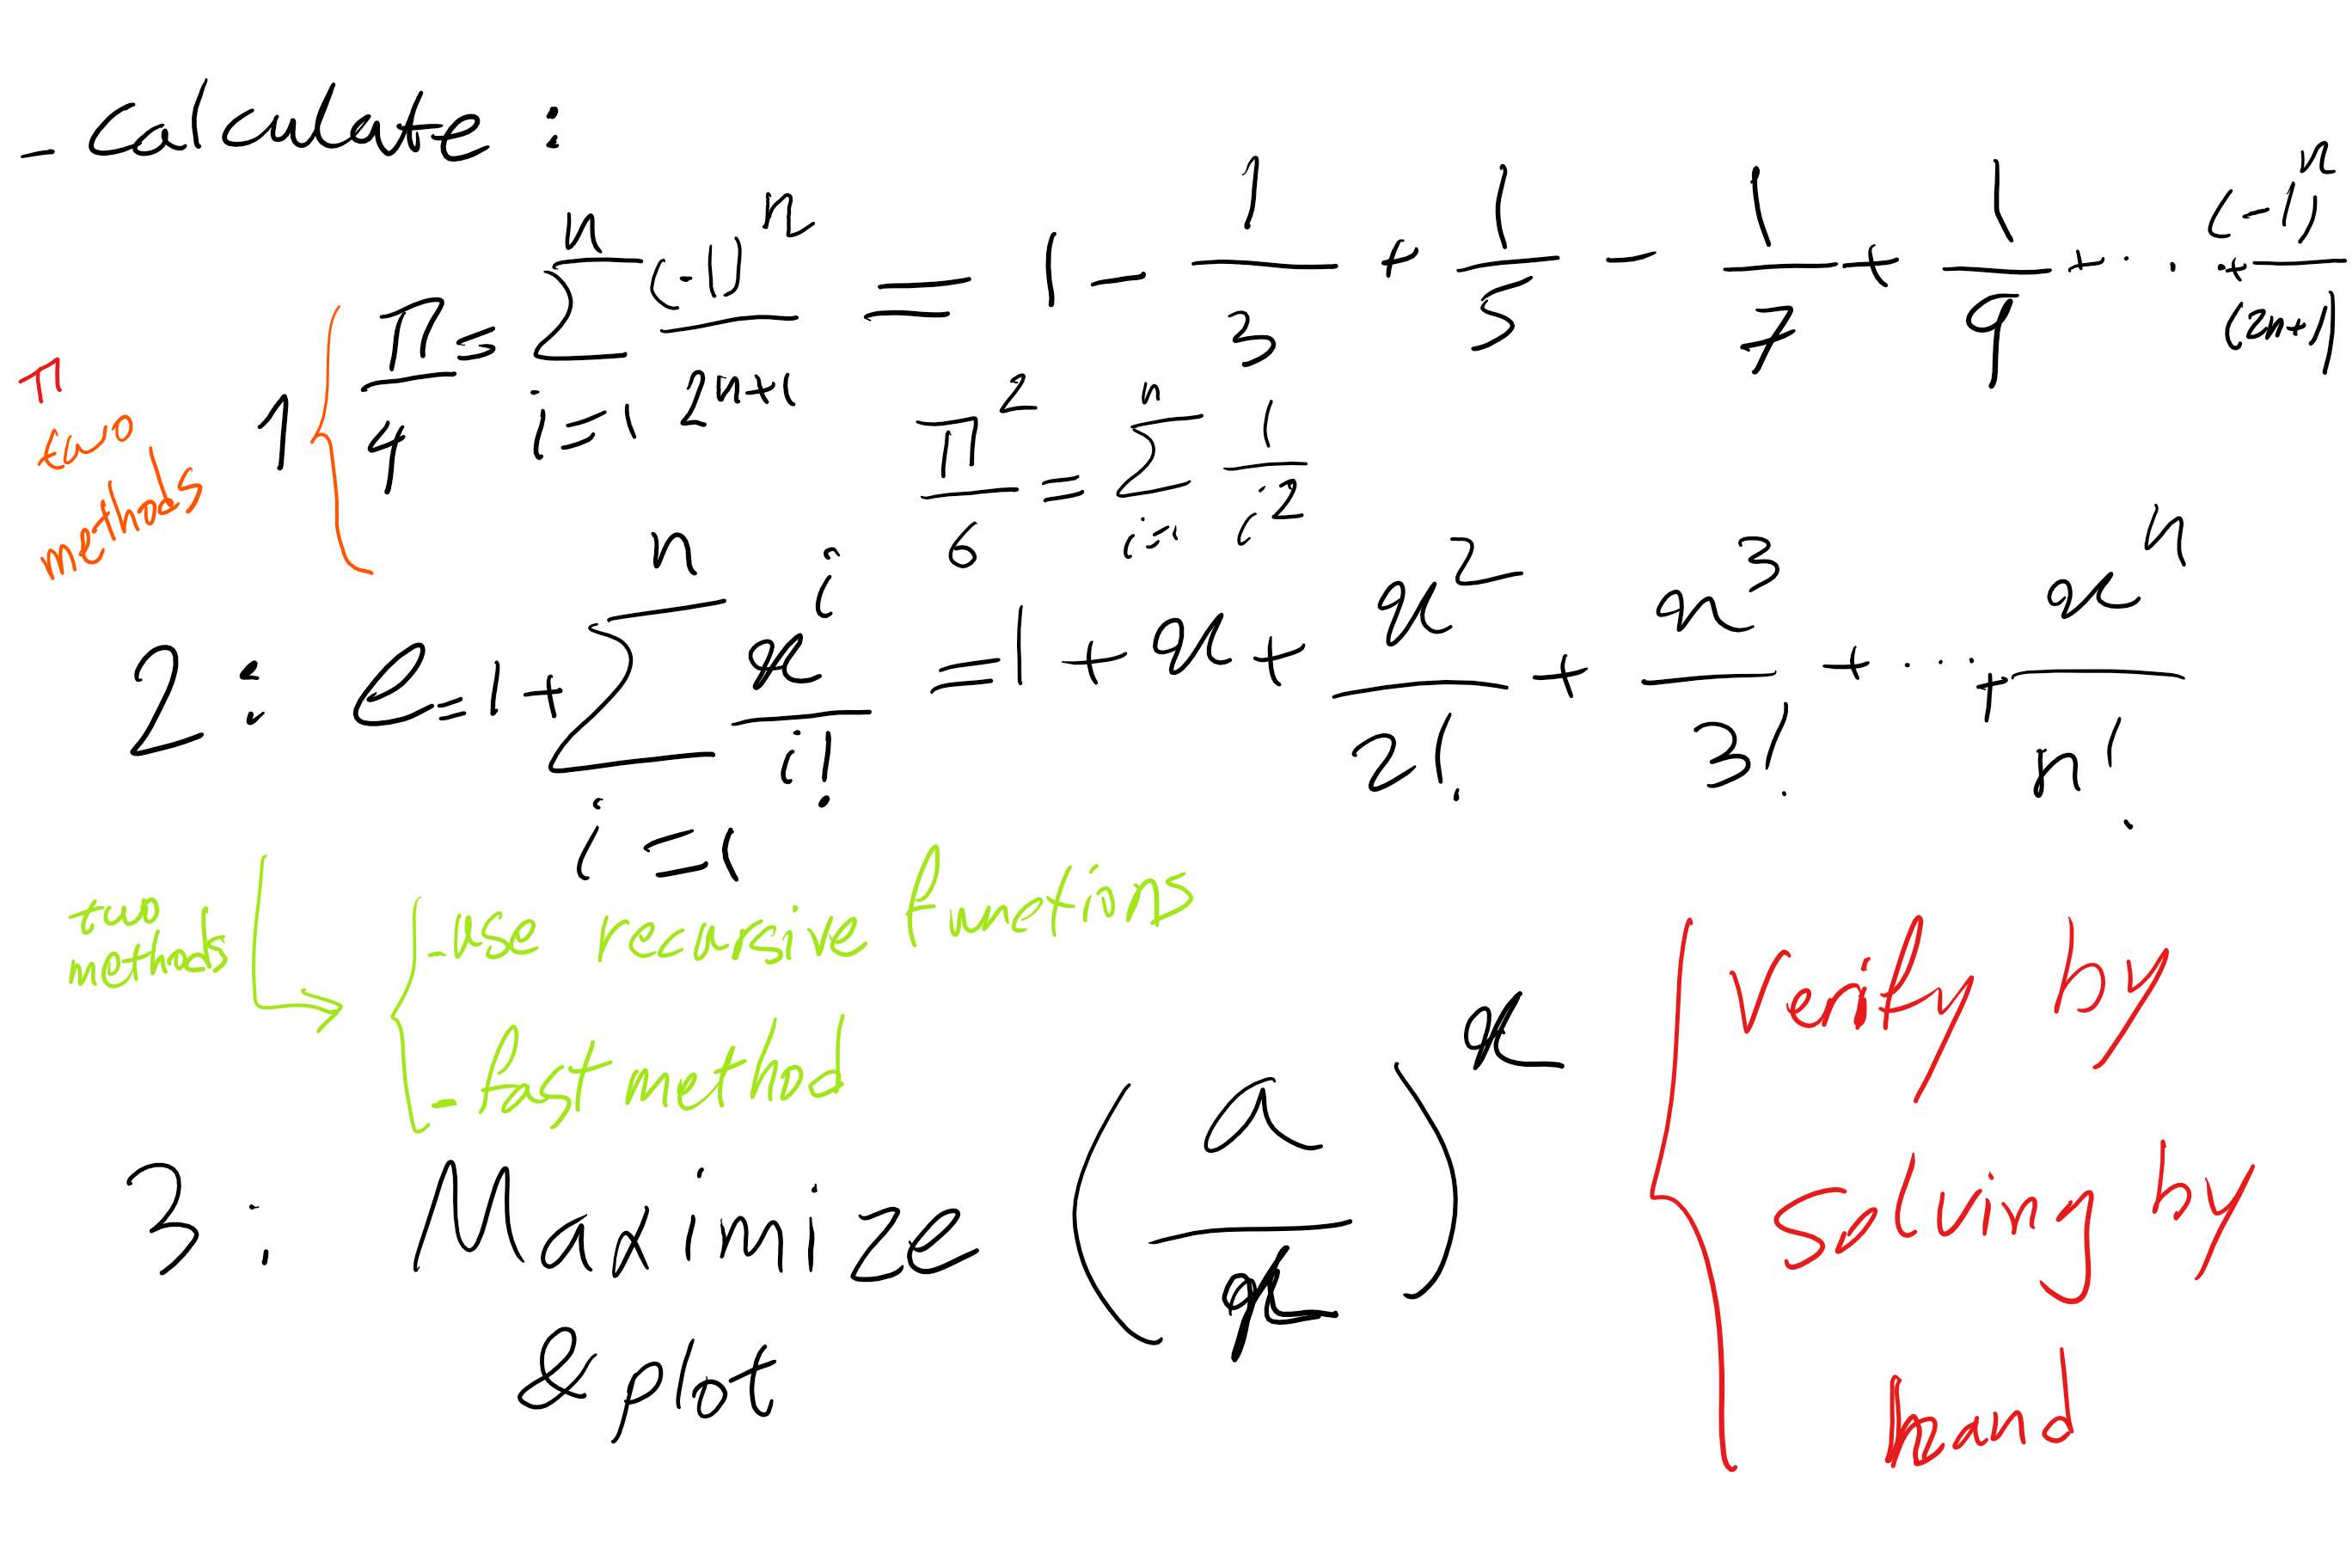 - Calculate :
π/4 = Σ_{i=1}^{n} (-1)^n / 2n+1 = 1 - 1/3 + 1/5 - 1/7 + 1/9 + ... + (-1)^n / (2n+1)
π two methods
1
π²/6 = Σ_{i=1}^{n} 1/i²
2 : e = 1 + Σ_{i=1}^{n} x^i / i! = 1 + x + x²/2! + x³/3! + ... + x^n / n!
two methods
- use recursive functions
- fast method
3 : Maximize (a/x)^x
& plot
Verify by
solving by
hand